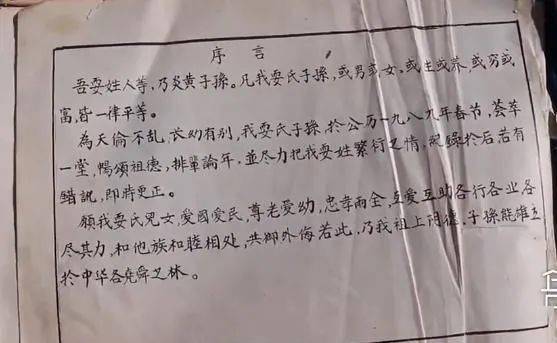 序言
吾耍姓人等,乃炎黄子孫。凡我耍氏子孫,或男或女。或生或养,或穷或
富,皆一律平等。
為天倫不乱,长幼有别,我耍氏子孫,於公历一九八九年春节,荟萃
一堂,暢頌祖德,排輩論年,並尽力把我耍姓繁衍之情,紀錄於后若有
錯訛,即時更正。
願我耍氏兒女,爱國爱民,尊老爱幼,忠孝兩全,互爱互助各行各业各
尽其力,和他族和睦相处,共御外侮若此,乃我祖上阴德,子孫能雄立
於中华各尧舜之林。